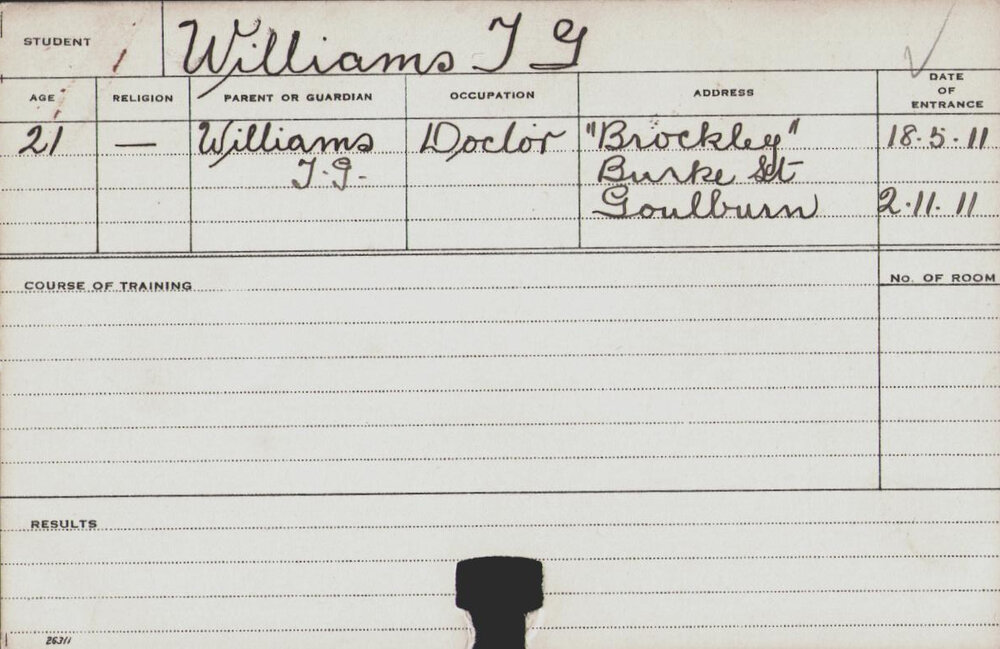 STUDENT Williams T G
AGE RELIGION PARENT OR GUARDIAN OCCUPATION ADDRESS DATE OF ENTRANCE
21 — Williams Doctor "Brockley" 18.5.11
T.G. Burke St
Goulburn 2.11.11
COURSE OF TRAINING No. OF ROOM
RESULTS
26311